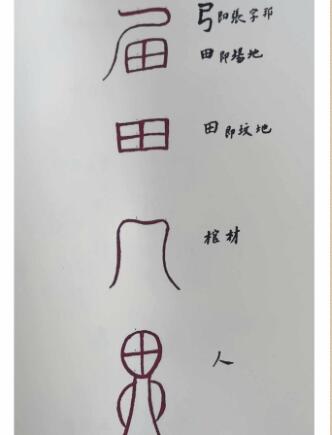 弓 即張字邦
田 即場地
田 即坟地
棺材
人